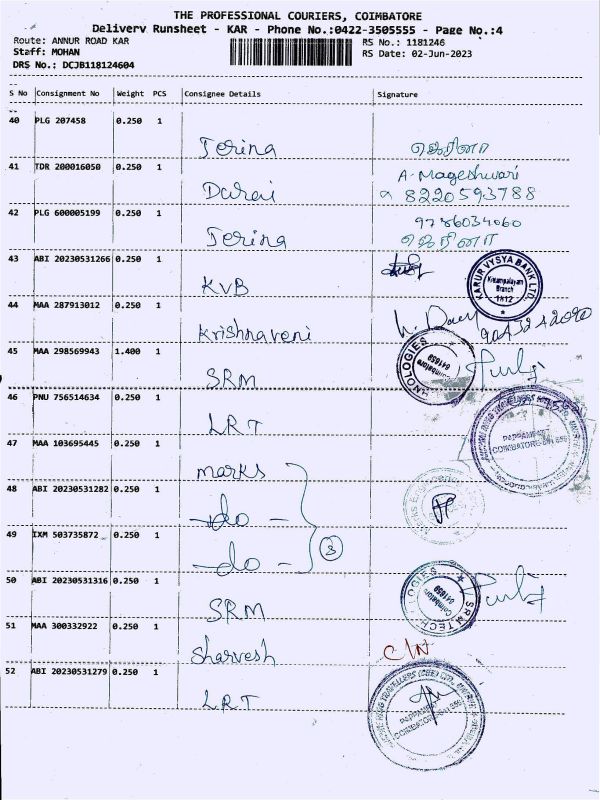 THE PROFESSIONAL COURIERS, COIMBATORE
Delivery Runsheet - KAR - Phone No.:0422-3505555 - Page No.:4
Route: ANNUR ROAD KAR
RS No.: 1181246
Staff: MOHAN
RS Date: 02-Jun-2023
DRS No.: DCJB118124604
S No Consignment No Weight PCS Consignee Details Signature
40 PLG 207458 0.250 1
Jerina ஜெரினா
41 TDR 200016050 0.250 1
A. Mageshwari
Darai 8220593788
42 PLG 600005199 0.250 1
9786034060
Jerina ஜெரினா
43 ABI 20230531266 0.250 1
KVB
KARUR VYSYA BANK LTD.
Branch
1812
44 MAA 287913012 0.250 1
Krishnaveni
45 MAA 298569943 1.400 1
SRM
HNOLOGIES
Coimbatore
641659
46 PNU 756514634 0.250 1
LRT
PAPPAMPATTI
COIMBATORE
47 MAA 103695445 0.250 1
marks
48 ABI 20230531282 0.250 1
-do-
49 IXM 503735872 0.250 1
-do-
3
50 ABI 20230531316 0.250 1
SRM
SRM TECH OLOGIES
Coimbatore
641659
51 MAA 300332922 0.250 1
Sharvesh C/N
52 ABI 20230531279 0.250 1
LRT
TRAVELLERS (CBE)
PAPPAMPATTI
COIMBATORE